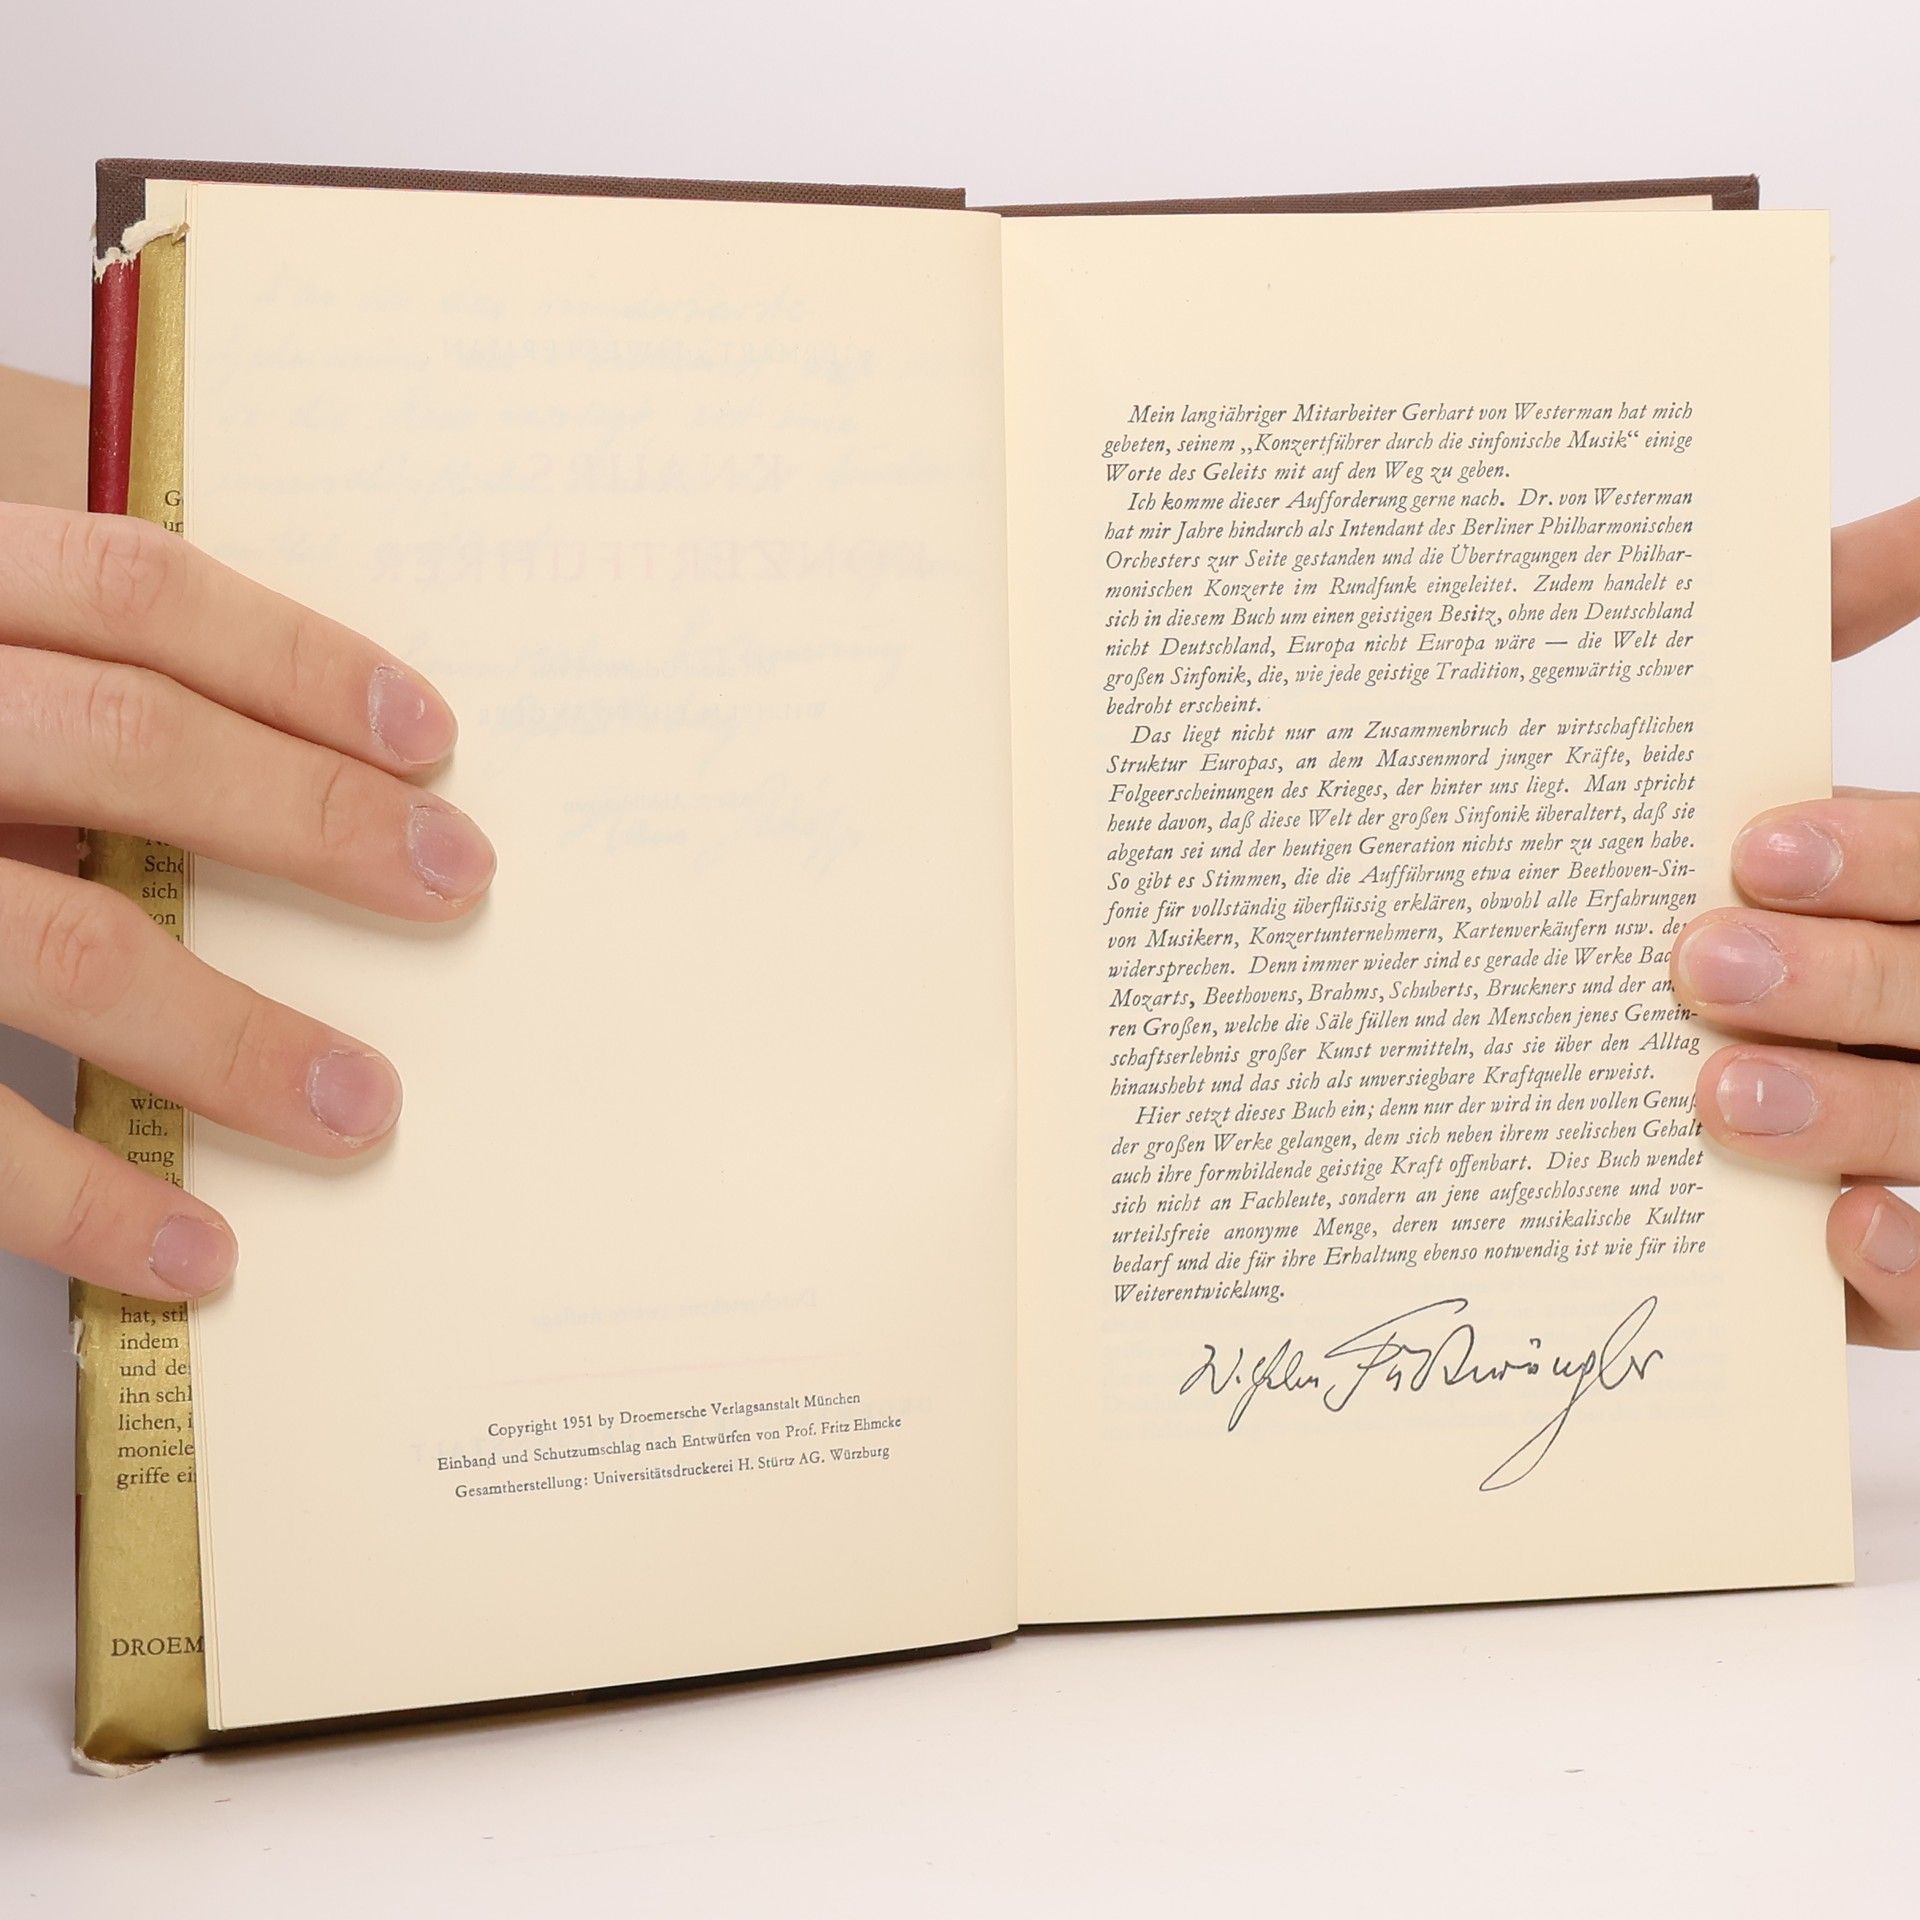 un
Scho
sich
von
lich.
gung
hat, sti
indem
und de
ihn schl
lichen, i
moniele
griffe ei
DROEM
Copyright 1951 by Droemersche Verlagsanstalt München
Einband und Schutzumschlag nach Entwürfen von Prof. Fritz Ehmcke
Gesamtherstellung: Universitätsdruckerei H. Stürtz AG. Würzburg
Mein langjähriger Mitarbeiter Gerhart von Westerman hat mich
gebeten, seinem „Konzertführer durch die sinfonische Musik“ einige
Worte des Geleits mit auf den Weg zu geben.
Ich komme dieser Aufforderung gerne nach. Dr. von Westerman
hat mir Jahre hindurch als Intendant des Berliner Philharmonischen
Orchesters zur Seite gestanden und die Übertragungen der Philhar-
monischen Konzerte im Rundfunk eingeleitet. Zudem handelt es
sich in diesem Buch um einen geistigen Besitz, ohne den Deutschland
nicht Deutschland, Europa nicht Europa wäre — die Welt der
großen Sinfonik, die, wie jede geistige Tradition, gegenwärtig schwer
bedroht erscheint.
Das liegt nicht nur am Zusammenbruch der wirtschaftlichen
Struktur Europas, an dem Massenmord junger Kräfte, beides
Folgeerscheinungen des Krieges, der hinter uns liegt. Man spricht
heute davon, daß diese Welt der großen Sinfonik überaltert, daß sie
abgetan sei und der heutigen Generation nichts mehr zu sagen habe.
So gibt es Stimmen, die die Aufführung etwa einer Beethoven-Sin-
fonie für vollständig überflüssig erklären, obwohl alle Erfahrungen
von Musikern, Konzertunternehmern, Kartenverkäufern usw. dem
widersprechen. Denn immer wieder sind es gerade die Werke Bac
Mozarts, Beethovens, Brahms, Schuberts, Bruckners und der an
ren Großen, welche die Säle füllen und den Menschen jenes Gemein-
schaftserlebnis großer Kunst vermitteln, das sie über den Alltag
hinaushebt und das sich als unversiegbare Kraftquelle erweist.
Hier setzt dieses Buch ein; denn nur der wird in den vollen Genuß
der großen Werke gelangen, dem sich neben ihrem seelischen Gehalt
auch ihre formbildende geistige Kraft offenbart. Dies Buch wendet
sich nicht an Fachleute, sondern an jene aufgeschlossene und vor-
urteilsfreie anonyme Menge, deren unsere musikalische Kultur
bedarf und die für ihre Erhaltung ebenso notwendig ist wie für ihre
Weiterentwicklung.
Wilhelm Furtwängler